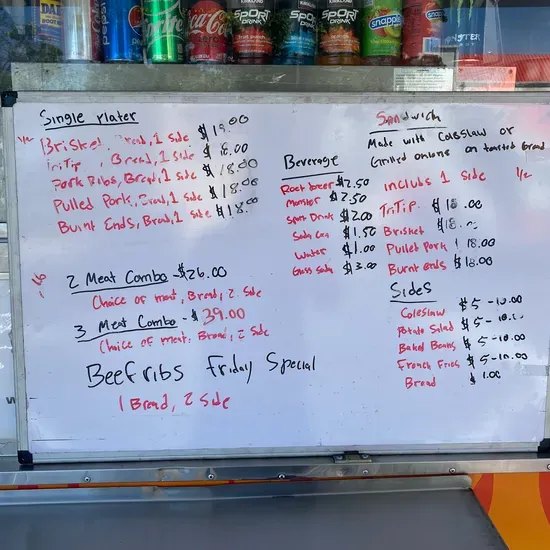 pepsi
Coca-Cola
SPORT DRINK
SPORT DRINK
SPORT DRINK
snapple
MONSTER
Single Plater
1/2
Brisket, Bread, 1 Side $19.00
TriTip, Bread, 1 Side $18.00
Pork Ribs, Bread, 1 Side $18.00
Pulled Pork, Bread, 1 Side $18.00
Burnt Ends, Bread, 1 Side $18.00
2 Meat Combo - $26.00
Choice of meat, Bread, 2 Side
3 Meat Combo - $39.00
Choice of meat, Bread, 2 Side
Beef ribs Friday Special
1 Bread, 2 Side
Beverage
Root beer $2.50
Monster $2.50
Sport Drink $2.00
Soda Can $1.50
Water $1.00
Glass Soda $3.00
Sandwich
Made with Coleslaw or
Grilled onions on toasted Bread
includs 1 Side
1/2
TriTip $18.00
Brisket $18.
Pullet Pork 18.00
Burnt Ends $18.00
Sides
Coleslaw $5-10.00
Potato Salad $5-10.
Baked Beans $5-10.00
French Fries $5-10.00
Bread $1.00